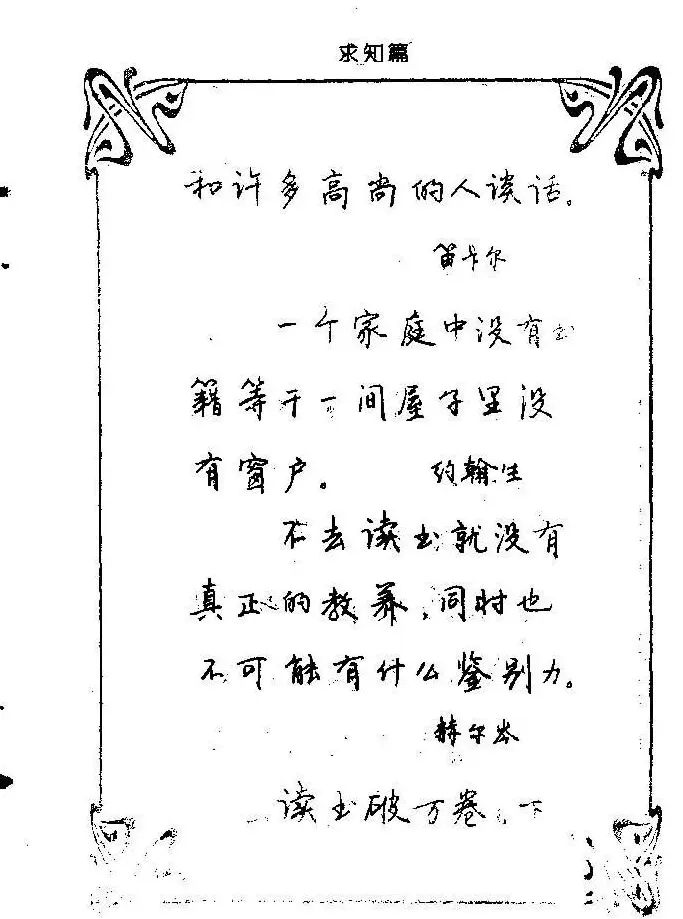 求知篇
和许多高尚的人谈话。
笛卡尔
一个家庭中没有书
籍等于一间屋子里没
有窗户。 约翰生
不去读书就没有
真正的教养,同时也
不可能有什么鉴别力。
赫尔岑
读书破万卷,下